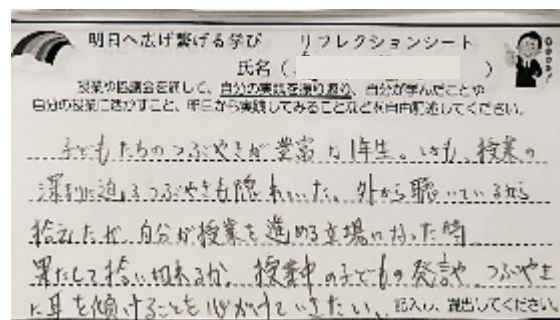 明日へ広げ繋げる学び リフレクションシート
氏名( )
授業や協議会を通して、自分の実践を振り返り、自分が学んだことや
自分の授業に活かすこと、明日から実践してみることなどを自由記述してください。
子どもたちのつぶやきが豊富な1年生。しかも、授業の
深まりに迫るつぶやきも隠れていた。外から聴いているから
拾えたが、自分が授業を進める立場になった時
果たして拾い切れるか。授業中の子どもの発言や、つぶやき
に耳を傾けることを心がけていきたい。 記入し、提出してください。